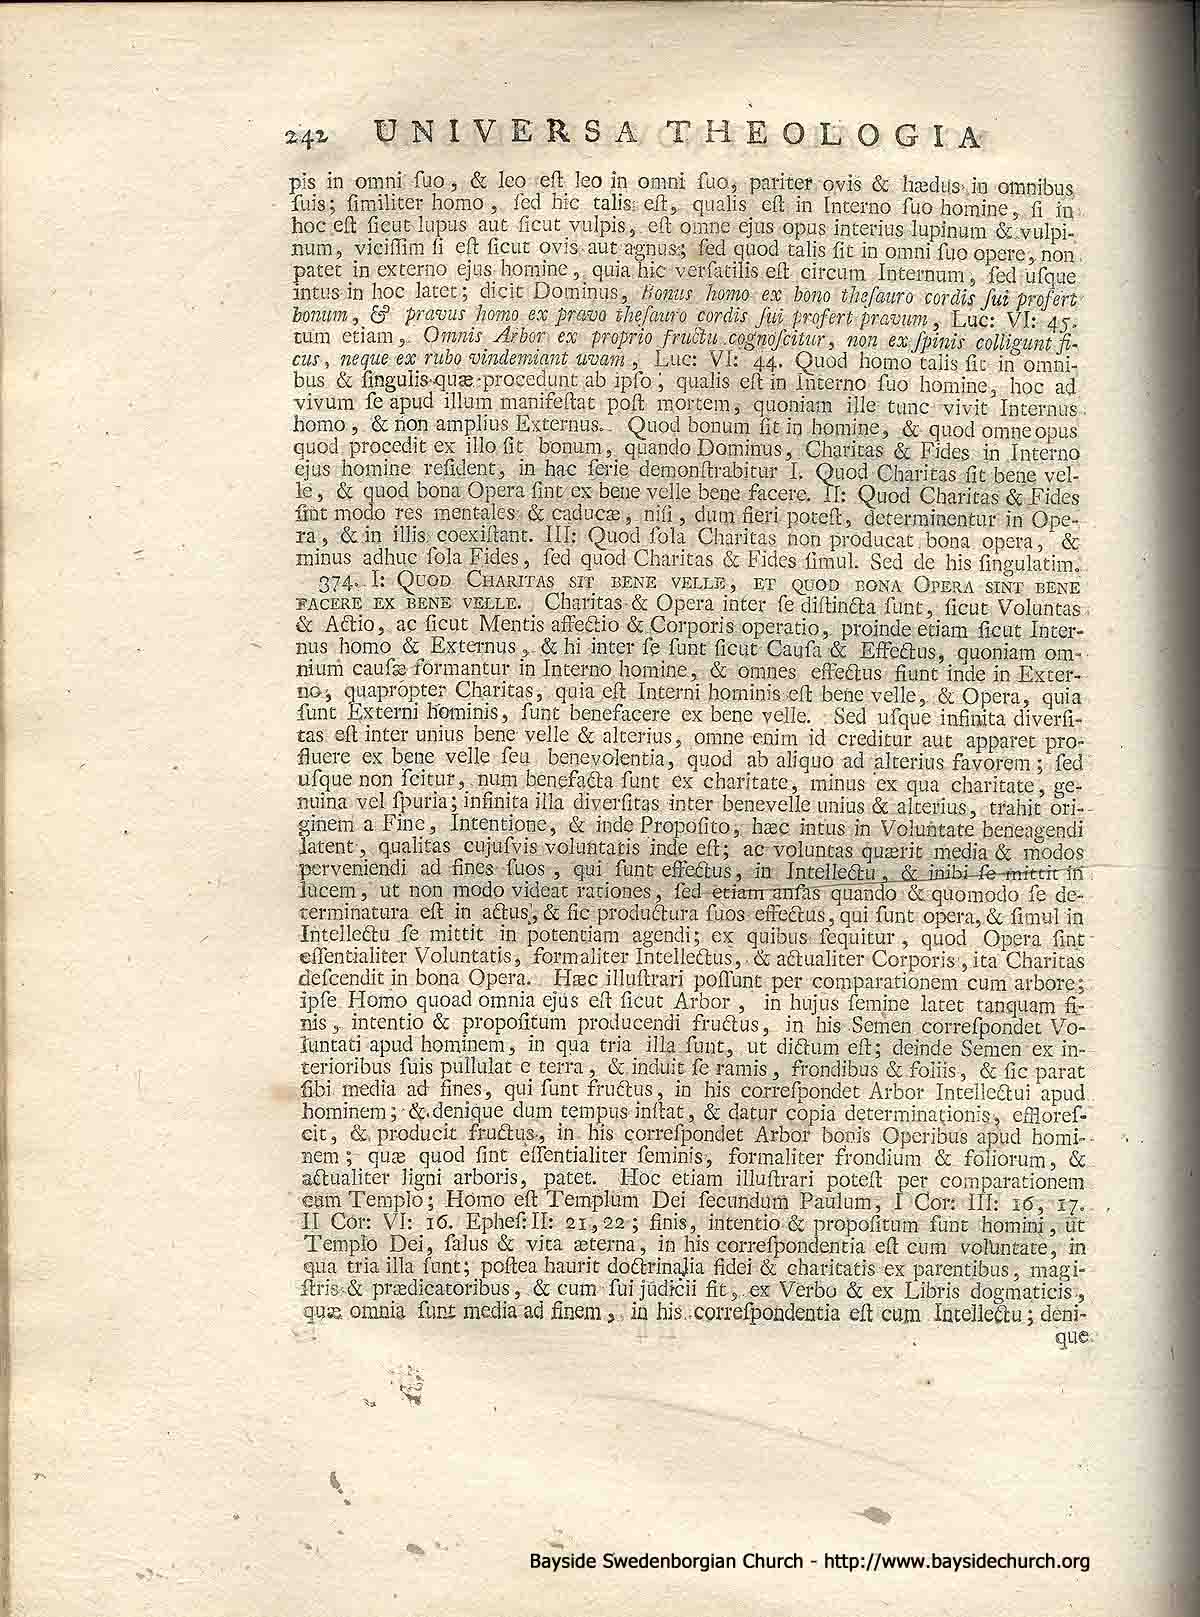 242 UNIVERSA THEOLOGIA
pis in omni ſuo, & leo eſt leo in omni ſuo, pariter ovis & hædus in omnibus
ſuis; ſimiliter homo, ſed hic talis eſt, qualis eſt in Interno ſuo homine, ſi in
hoc eſt ſicut lupus aut ſicut vulpis, eſt omne ejus opus interius lupinum & vulpi-
num, viciſſim ſi eſt ſicut ovis aut agnus; ſed quod talis ſit in omni ſuo opere, non
patet in externo ejus homine, quia hic verſatilis eſt circum Internum, ſed uſque
intus in hoc latet; dicit Dominus, Bonus homo ex bono theſauro cordis ſui profert
bonum, & pravus homo ex pravo theſauro cordis ſui profert pravum, Luc: VI: 45.
tum etiam, Omnis Arbor ex proprio fructu cognoſcitur, non ex ſpinis colligunt fi-
cus, neque ex rubo vindemiant uvam, Luc: VI: 44. Quod homo talis ſit in omni-
bus & ſingulis quæ procedunt ab ipſo, qualis eſt in Interno ſuo homine, hoc ad
vivum ſe apud illum manifeſtat poſt mortem, quoniam ille tunc vivit Internus
homo, & non amplius Externus. Quod bonum ſit in homine, & quod omne opus
quod procedit ex illo ſit bonum, quando Dominus, Charitas & Fides in Interno
ejus homine reſident, in hac ſerie demonſtrabitur I. Quod Charitas ſit bene vel-
le, & quod bona Opera ſint ex bene velle bene facere. II: Quod Charitas & Fides
ſint modo res mentales & caducæ, niſi, dum fieri poteſt, determinentur in Ope-
ra, & in illis coexiſtant. III: Quod ſola Charitas non producat bona opera, &
minus adhuc ſola Fides, ſed quod Charitas & Fides ſimul. Sed de his ſingulatim.
374. I: QUOD CHARITAS SIT BENE VELLE, ET QUOD BONA OPERA SINT BENE
FACERE EX BENE VELLE. Charitas & Opera inter ſe diſtincta ſunt, ſicut Voluntas
& Actio, ac ſicut Mentis affectio & Corporis operatio, proinde etiam ſicut Inter-
nus homo & Externus, & hi inter ſe ſunt ſicut Cauſa & Effectus, quoniam om-
nium cauſæ formantur in Interno homine, & omnes effectus fiunt inde in Exter-
no, quapropter Charitas, quia eſt Interni hominis eſt bene velle, & Opera, quia
ſunt Externi hominis, ſunt benefacere ex bene velle. Sed uſque infinita diverſi-
tas eſt inter unius bene velle & alterius, omne enim id creditur aut apparet pro-
fluere ex bene velle ſeu benevolentia, quod ab aliquo ad alterius favorem; ſed
uſque non ſcitur, num benefacta ſunt ex charitate, minus ex qua charitate, ge-
nuina vel ſpuria; infinita illa diverſitas inter benevelle unius & alterius, trahit ori-
ginem a Fine, Intentione, & inde Propoſito, hæc intus in Voluntate beneagendi
latent, qualitas cujuſvis voluntatis inde eſt; ac voluntas quærit media & modos
perveniendi ad fines ſuos, qui ſunt effectus, in Intellectu, & inibi ſe mittit in
lucem, ut non modo videat rationes, ſed etiam anſas quando & quomodo ſe de-
terminatura eſt in actus, & ſic productura ſuos effectus, qui ſunt opera, & ſimul in
Intellectu ſe mittit in potentiam agendi; ex quibus ſequitur, quod Opera ſint
eſſentialiter Voluntatis, formaliter Intellectus, & actualiter Corporis, ita Charitas
deſcendit in bona Opera. Hæc illuſtrari poſſunt per comparationem cum arbore;
ipſe Homo quoad omnia ejus eſt ſicut Arbor, in hujus ſemine latet tanquam fi-
nis, intentio & propoſitum producendi fructus, in his Semen correſpondet Vo-
luntati apud hominem, in qua tria illa ſunt, ut dictum eſt; deinde Semen ex in-
terioribus ſuis pullulat e terra, & induit ſe ramis, frondibus & foliis, & ſic parat
ſibi media ad fines, qui ſunt fructus, in his correſpondet Arbor Intellectui apud
hominem; & denique dum tempus inſtat, & datur copia determinationis, effloreſ-
cit, & producit fructus, in his correſpondet Arbor bonis Operibus apud homi-
nem; quæ quod ſint eſſentialiter ſeminis, formaliter frondium & foliorum, &
actualiter ligni arboris, patet. Hoc etiam illuſtrari poteſt per comparationem
cum Templo; Homo eſt Templum Dei ſecundum Paulum, I Cor: III: 16, 17.
II Cor: VI: 16. Epheſ: II: 21, 22; finis, intentio & propoſitum ſunt homini, ut
Templo Dei, ſalus & vita æterna, in his correſpondentia eſt cum voluntate, in
qua tria illa ſunt; poſtea haurit doctrinalia fidei & charitatis ex parentibus, magi-
ſtris & prædicatoribus, & cum ſui judicii fit, ex Verbo & ex Libris dogmaticis,
quæ omnia ſunt media ad finem, in his correſpondentia eſt cum Intellectu; deni-
que
Bayside Swedenborgian Church - http://www.baysidechurch.org